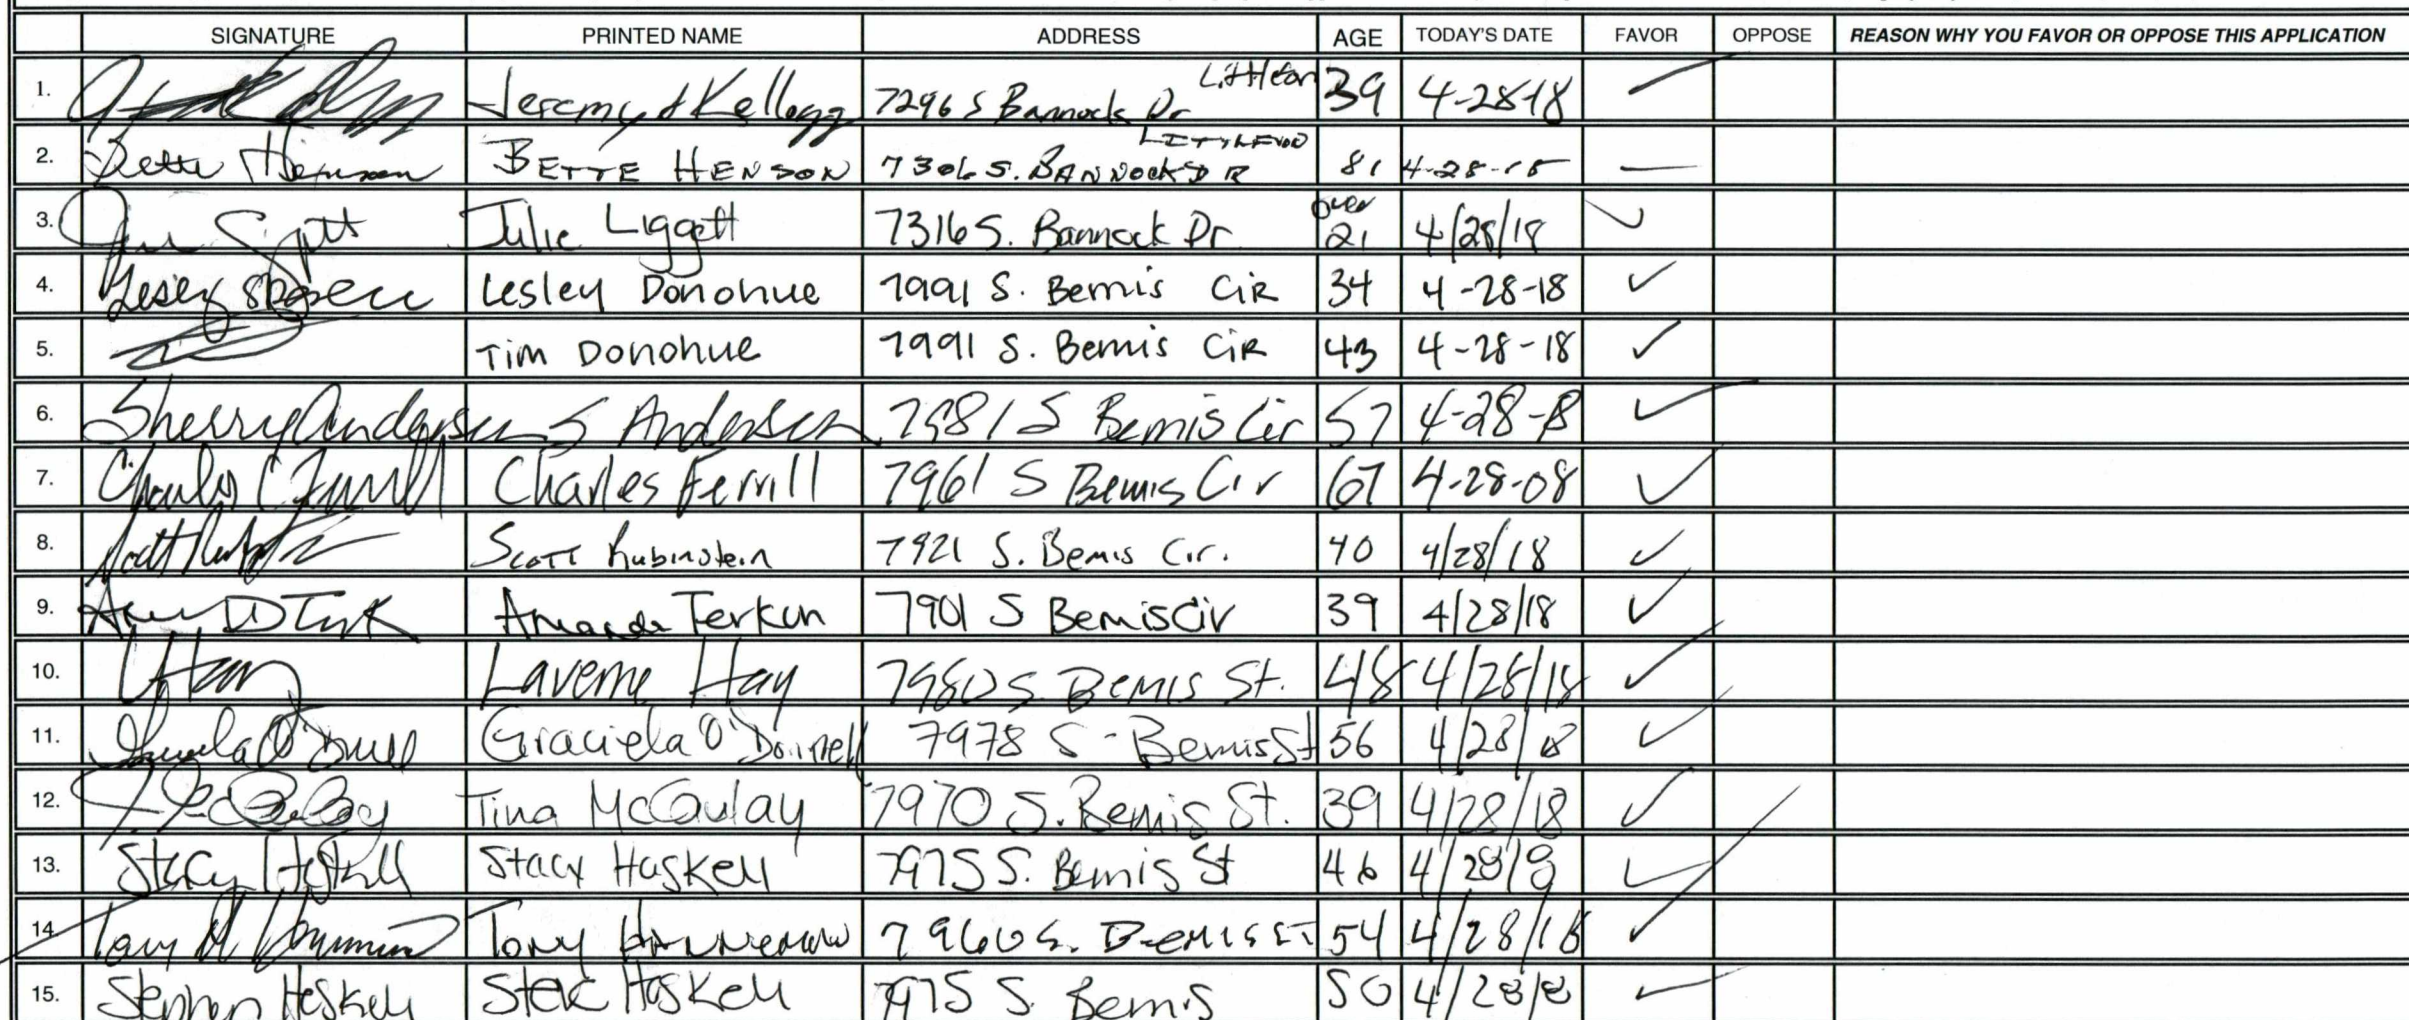 SIGNATURE PRINTED NAME ADDRESS AGE TODAY'S DATE FAVOR OPPOSE REASON WHY YOU FAVOR OR OPPOSE THIS APPLICATION
1. Jeremy Kellogg 7296 S Bannock Dr Littleton 39 4-28-18
2. Bette Henson BETTE HENSON 7306 S. BANNOCK DR LITTLETON 81 4-28-18
3. Julie Liggett 7316 S. Bannock Dr over 21 4/28/18
4. Lesley Donohue 7991 S. Bemis CIR 34 4-28-18
5. Tim Donohue 7991 S. Bemis CIR 43 4-28-18
6. Sherry Andersen S Andersen 7981 S Bemis Cir 57 4-28-18
7. Charles C Ferrill Charles Ferrill 7961 S Bemis Cir 67 4-28-08
8. Scott Rubinstein 7921 S. Bemis Cir. 40 4/28/18
9. Amanda Terkun 7901 S Bemis Cir 39 4/28/18
10. Laverne Hay 7980 S. Bemis St. 48 4/28/18
11. Graciela O'Donnell 7978 S. Bemis St 56 4/28/18
12. Tina McCaulay 7970 S. Bemis St. 39 4/28/18
13. Stacy Haskell Stacy Haskell 7975 S. Bemis St 46 4/28/18
14. Tony 7960 S. Bemis ST 54 4/28/18
15. Stephen Haskell Steve Haskell 7975 S. Bemis 50 4/28/18